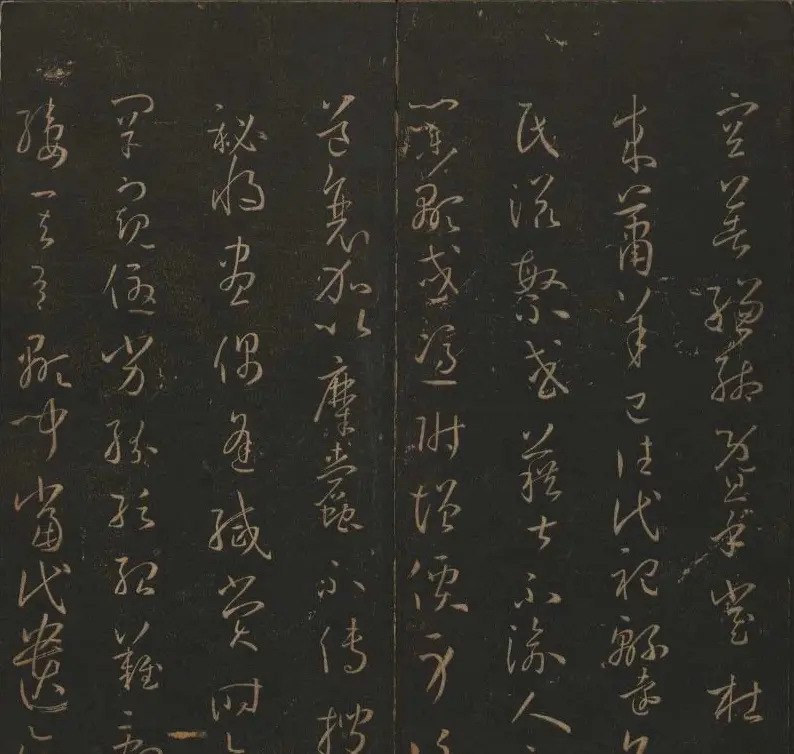 空著縑緗暨乎崔杜
來蕭羊已往代祀綿遠名
氏滋繁或藉甚不渝人
業顯或憑附增價身
道衰加以糜蠹不傳搜
秘將盡偶逢緘賞時
罕窺優劣紛紜殆難
縷其有顯聞當代遺